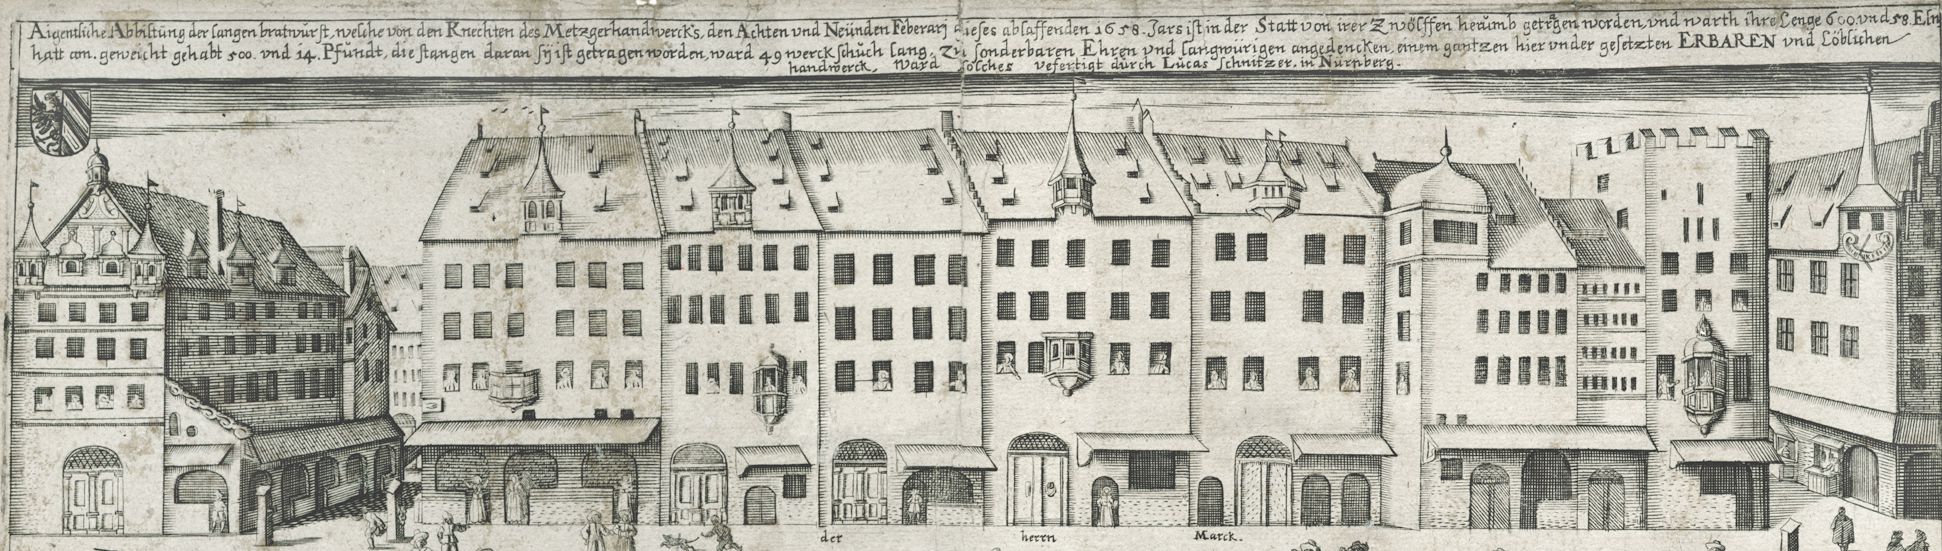 Aigentliche Abbiltung der langen bratwurst, welche von den Knechten des Metzgerhandwercks, den Achten und Neünden Feberarj dieses ablaffenden 1658. Jars ist in der Statt von irer Zwölffen herümb getrgen worden, und warth ihre Lenge 600. vnd 58. Eln
hatt am. geweicht gehabt 500. vnd 14. Pfundt, die stangen daran sÿ ist getragen worden, ward 49 werckschüch lang. Zu sonderbaren Ehren vnd langwürigen angedencken, einem gantzen hier vnder gesetzten ERBAREN vnd Löblichen
handwerck, ward solches vefertigt dürch Lucas schnitzer. in Nürnberg.
der herrn Marck.